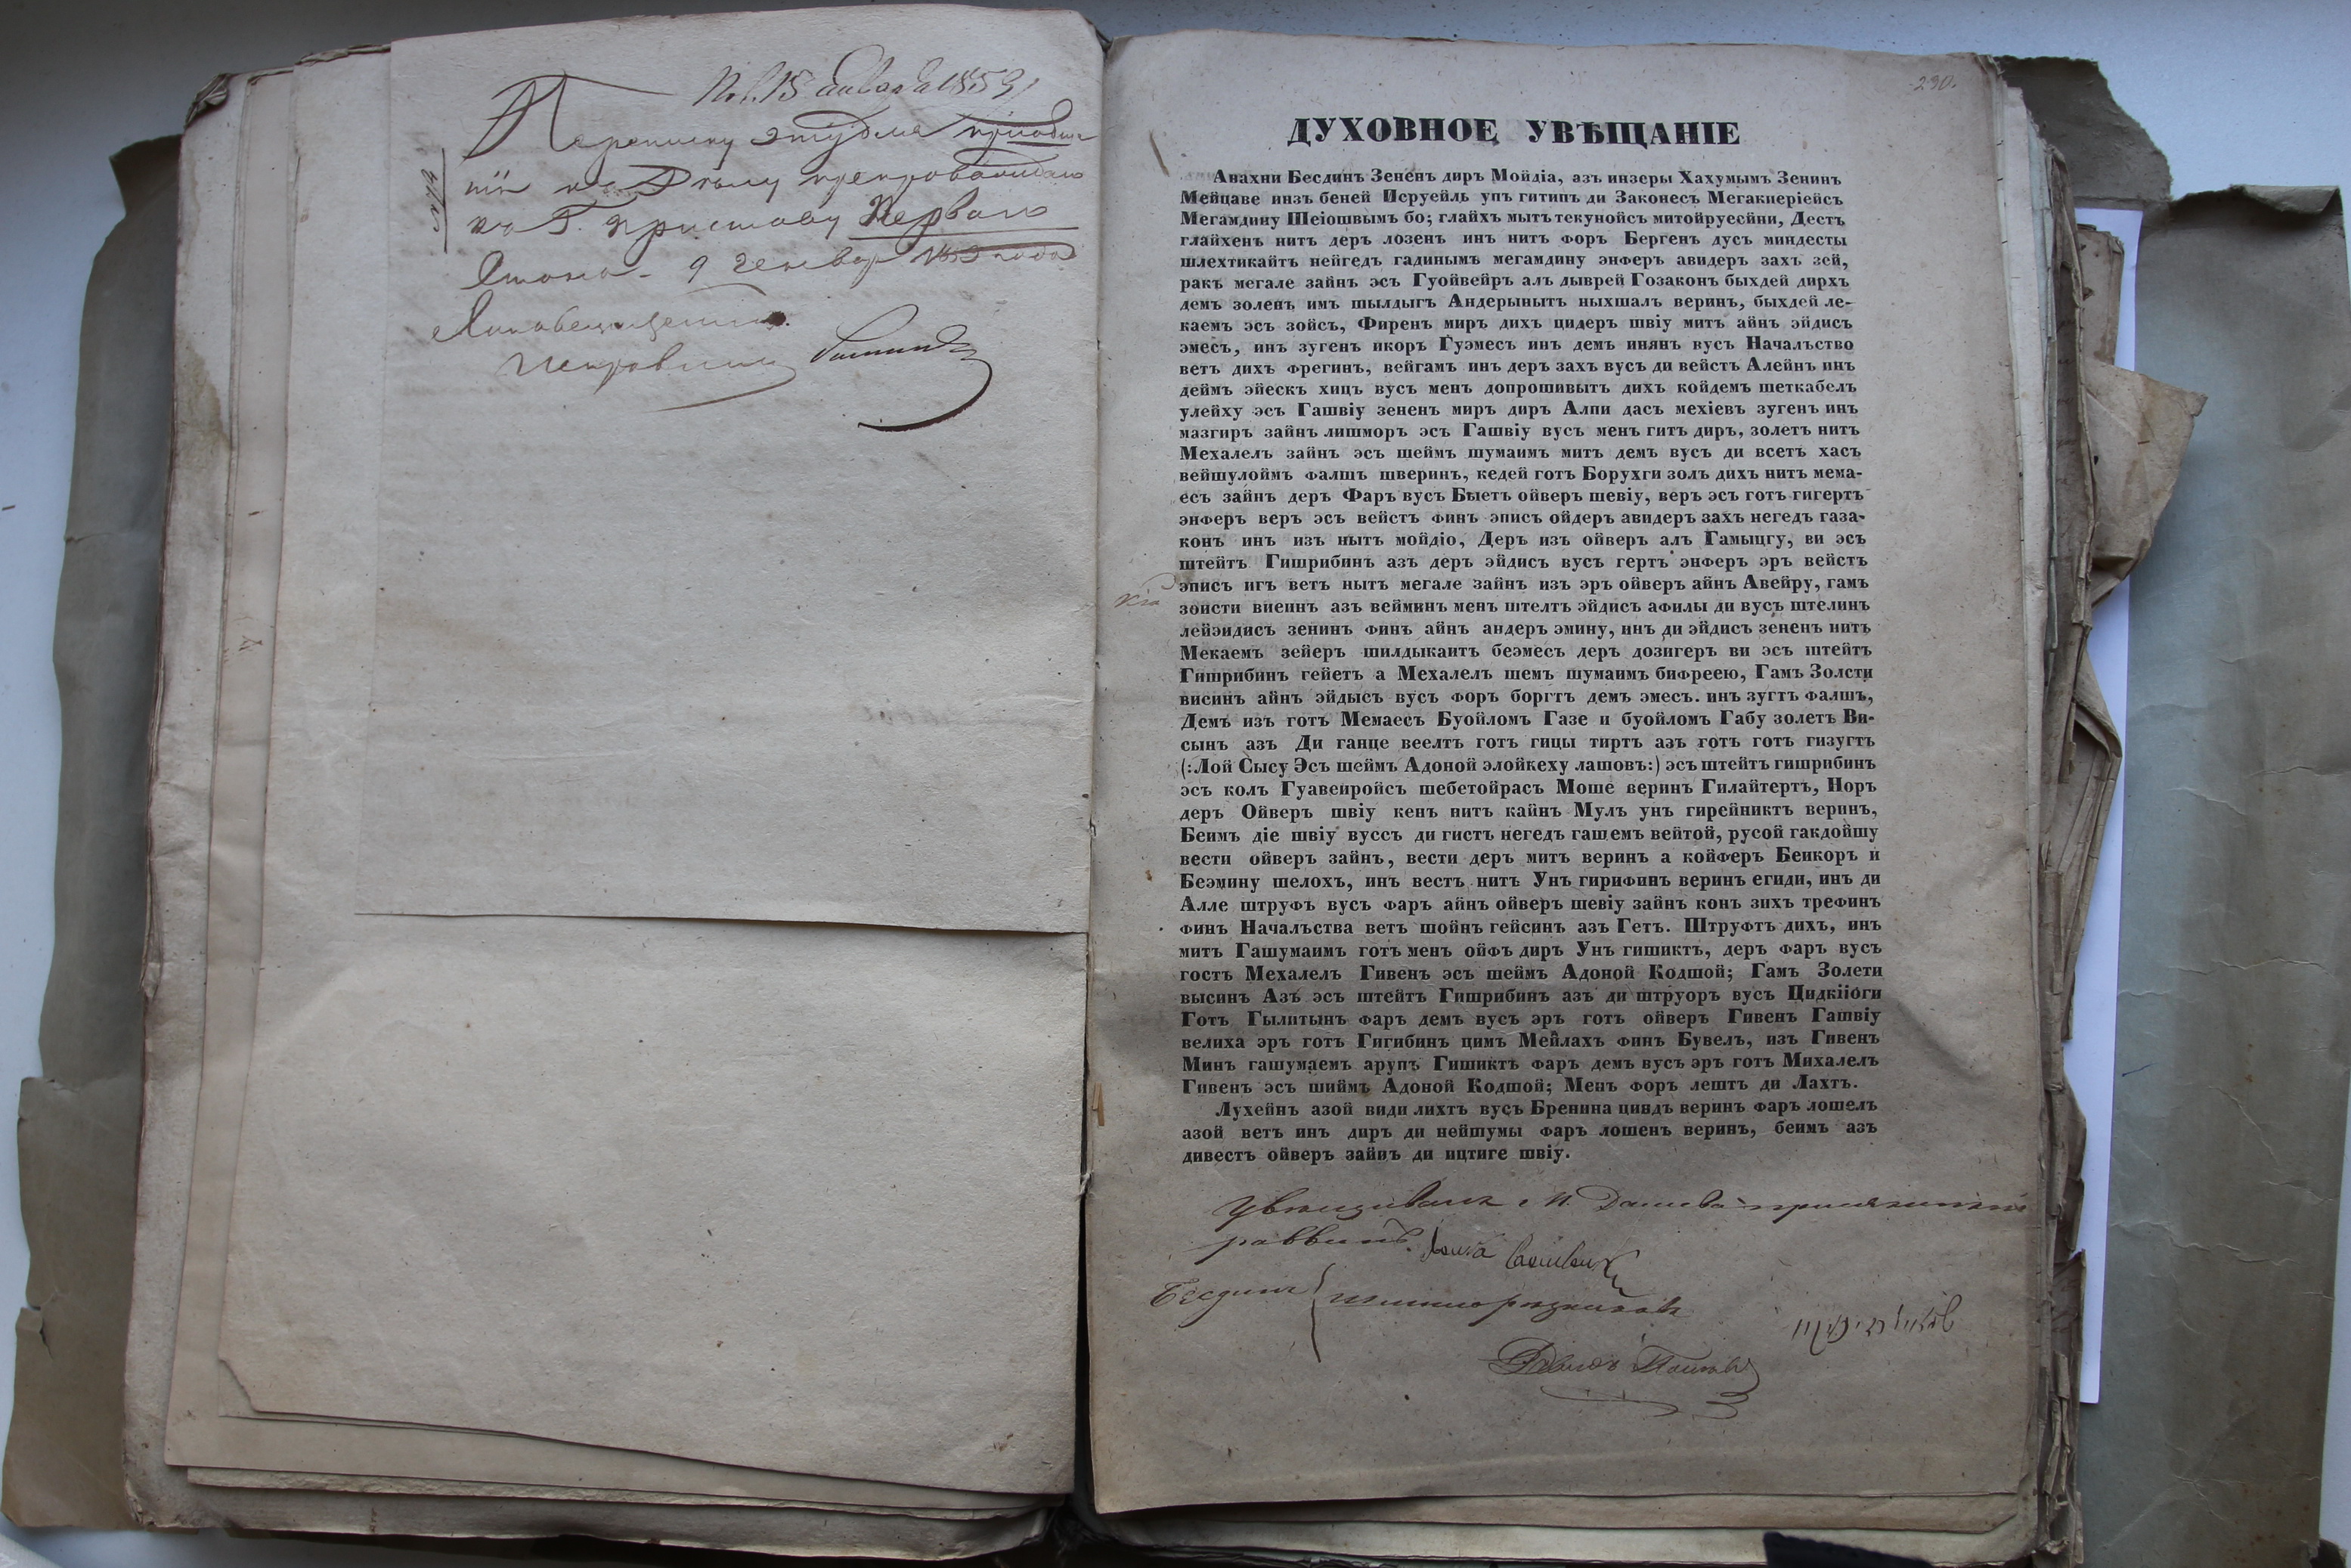 15 января 1853
Переписку эту для приобще-
нія къ Дѣлу препровождаю
къ Г. Приставу Перваго
Стана. 9 Генваря 1853 года
Исправникъ
230.
ДУХОВНОЕ УВѢЩАНІЕ
Анахни Бесдинъ Зененъ диръ Мойдіа, азъ инзеры Хахумымъ Зенинъ
Мейцаве инзъ беней Исруейль упъ гитипъ ди Законесъ Мегакиеріейсъ
Мегамдину Шеіошвымъ бо; глайхъ мытъ текунойсъ митойруесйни, Дестъ
глайхенъ нитъ деръ лозенъ инъ нитъ форъ Бергенъ дусъ миндесты
шлехтикайтъ нейгедъ гадинымъ мегамдину энферъ авидеръ захъ зей,
ракъ мегале зайнъ эсъ Гуойвейръ алъ дыврей Гозаконъ быхдей дирхъ
демъ золенъ имъ шылдыгъ Андерынытъ ныхшалъ веринъ, быхдей ле-
каемъ эсъ зойсъ, Фиренъ миръ дихъ цидеръ швіу митъ айнъ эйдисъ
эмесъ, инъ зугенъ икоръ Гуэмесъ инъ демъ инянъ вусъ Началъство
ветъ дихъ фрегинъ, вейгамъ инъ деръ захъ вусъ ди вейстъ Алейнъ инъ
деймъ эйескъ хицъ вусъ менъ допрошивытъ дихъ койдемъ шеткабелъ
улейху эсъ Гашвіу зененъ миръ диръ Алпи дасъ мехіевъ зугенъ инъ
мазгиръ зайнъ лишморъ эсъ Гашвіу вусъ менъ гитъ диръ, золетъ нитъ
Мехалелъ зайнъ эсъ шеймъ шумаимъ митъ демъ вусъ ди всетъ хасъ
вейшулоймъ фалшъ шверинъ, кедей готъ Борухги золъ дихъ нитъ мема-
есъ зайнъ деръ Фаръ вусъ Быетъ ойверъ шевіу, веръ эсъ готъ гигертъ
энферъ веръ эсъ вейстъ финъ эписъ ойдеръ авидеръ захъ негедъ газа-
конъ инъ изъ нытъ мойдіо, Деръ изъ ойверъ алъ Гамыцгу, ви эсъ
штейтъ Гишрибинъ азъ деръ эйдисъ вусъ гертъ энферъ эръ вейстъ
эписъ игъ ветъ нытъ мегале зайнъ изъ эръ ойверъ айнъ Авейру, гамъ
зоисти виеинъ азъ вейминъ менъ штелтъ эйдисъ афилы ди вусъ штелинъ
лейэидисъ зенинъ финъ айнъ андеръ эмину, инъ ди эйдисъ зененъ нитъ
Мекаемъ зейеръ шилдыкаитъ беэмесъ деръ дозигеръ ви эсъ штейтъ
Гишрибинъ гейетъ а Мехалелъ шемъ шумаимъ бифреею, Гамъ Золсти
висинъ айнъ эйдысъ вусъ форъ боргтъ демъ эмесъ. инъ зугтъ фалшъ,
Демъ изъ готъ Мемаесъ Буойломъ Газе и буойломъ Габу золетъ Ви-
сынъ азъ Ди ганце веелтъ готъ гицы тиртъ азъ готъ готъ гизугтъ
(:Лой Сысу Эсъ шеймъ Адоной элойкеху лашовъ:) эсъ штейтъ гишрибинъ
эсъ колъ Гуавейройсъ шебетойрасъ Моше веринъ Гилайтертъ, Норъ
деръ Ойверъ швіу кенъ нитъ кайнъ Мулъ унъ гирейниктъ веринъ,
Беимъ діе швіу вуссъ ди гистъ негедъ гашемъ вейтой, русой гакдойшу
вести ойверъ зайнъ, вести деръ митъ веринъ а койферъ Беикоръ и
Беэмину шелохъ, инъ вестъ нитъ Унъ гирифинъ веринъ егиди, инъ ди
Алле штруфъ вусъ фаръ айнъ ойверъ шевіу зайнъ конъ зихъ трефинъ
финъ Началъства ветъ шойнъ гейсинъ азъ Гетъ. Штруфтъ дихъ, инъ
митъ Гашумаимъ готъ менъ ойфъ диръ Унъ гишиктъ, деръ фаръ вусъ
гостъ Мехалелъ Гивенъ эсъ шеймъ Адоной Кодшой; Гамъ Золети
высинъ Азъ эсъ штейтъ Гишрибинъ азъ ди штруоръ вусъ Цидкіюги
Готъ Гылитынъ фаръ демъ вусъ эръ готъ ойверъ Гивенъ Гашвіу
велиха эръ готъ Гигибинъ цимъ Мейлахъ финъ Бувелъ, изъ Гивенъ
Минъ гашумаемъ арупъ Гишиктъ фаръ демъ вусъ эръ готъ Михалелъ
Гивенъ эсъ шиймъ Адоной Кодшой; Менъ форъ лештъ ди Лахтъ.
Лухейнъ азой види лихтъ вусъ Бренина циндъ веринъ фаръ лошелъ
азой ветъ инъ диръ ди нейшумы фаръ лошенъ веринъ, беимъ азъ
дивестъ ойверъ зайнъ ди ицтиге швіу.
Увѣщивалъ
раввинъ.
Бесдинъ